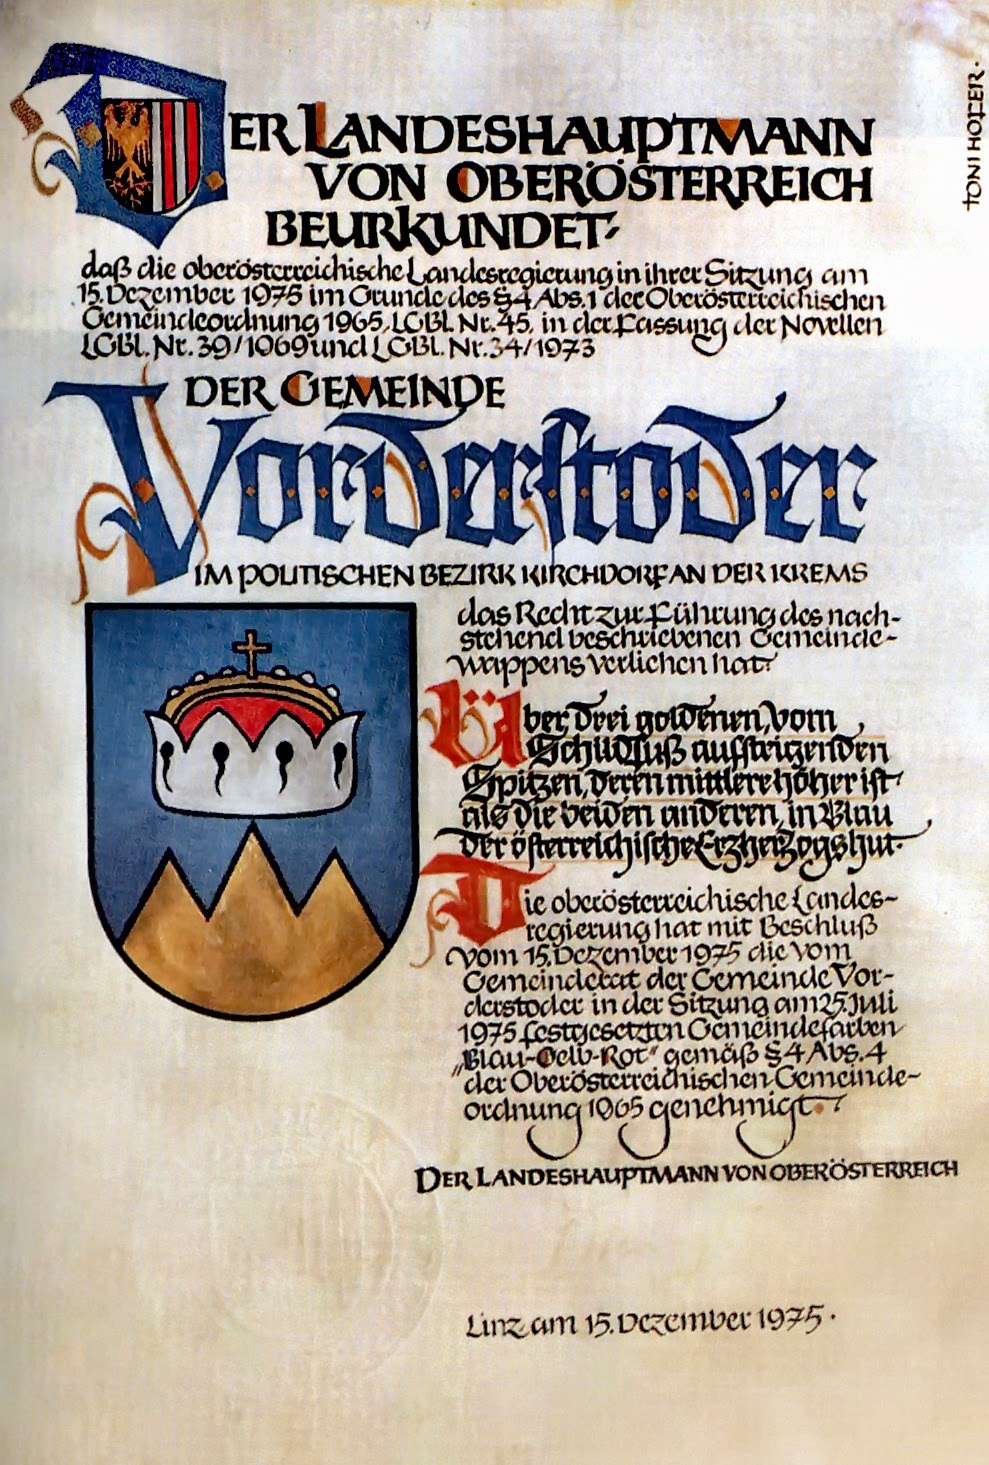 DER LANDESHAUPTMANN
VON OBERÖSTERREICH
BEURKUNDET
daß die oberösterreichische Landesregierung in ihrer Sitzung am
15. Dezember 1975 im Grunde des §4 Abs. 1 der Oberösterreichischen
Gemeindeordnung 1965, LGBl. Nr. 45, in der Fassung der Novellen
LGBl. Nr. 39/1969 und LGBl. Nr. 34/1973
DER GEMEINDE
Vorderstoder
IM POLITISCHEN BEZIRK KIRCHDORF AN DER KREMS
das Recht zur Führung des nach-
stehend beschriebenen Gemeinde-
wappens verliehen hat:
Über drei goldenen, vom
Schildfuß aufsteigenden
Spitzen, deren mittlere höher ist
als die beiden anderen, in Blau
der österreichische Erzherzogshut.
Die oberösterreichische Landes-
regierung hat mit Beschluß
vom 15. Dezember 1975 die vom
Gemeinderat der Gemeinde Vor-
derstoder in der Sitzung am 25. Juli
1975 festgesetzten Gemeindefarben
„Blau-Gelb-Rot" gemäß §4 Abs. 4
der Oberösterreichischen Gemeinde-
ordnung 1965 genehmigt.
DER LANDESHAUPTMANN VON OBERÖSTERREICH
Linz, am 15. Dezember 1975.
TONI HOFER.